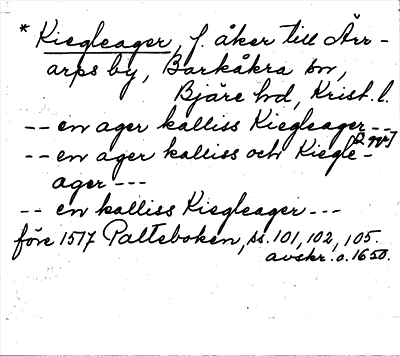 * Kiegleager, f. åker till Ärr-
arps by, Barkåkra sn,
Bjäre hd, Krist. l.
-- en ager kalliss Kiegleager --
2 ggr]
-- en ager kalliss och Kiegle-
ager ---
-- en kalliss Kiegleager ---
före 1517 Palteboken, ss. 101, 102, 105.
avskr. o. 1650.